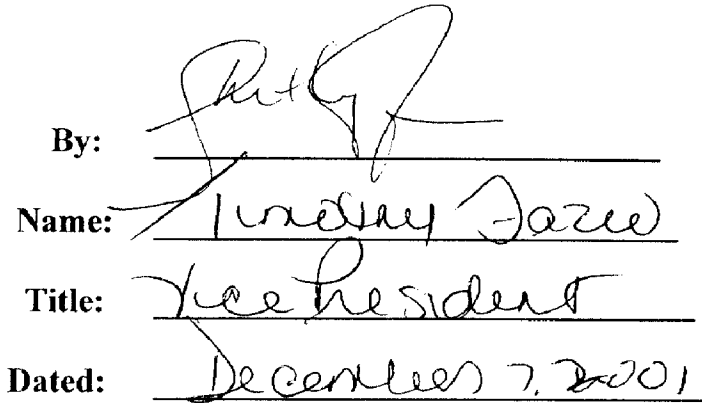 By:
Name: Lindsay Fazio
Title: Vice President
Dated: December 7, 2001